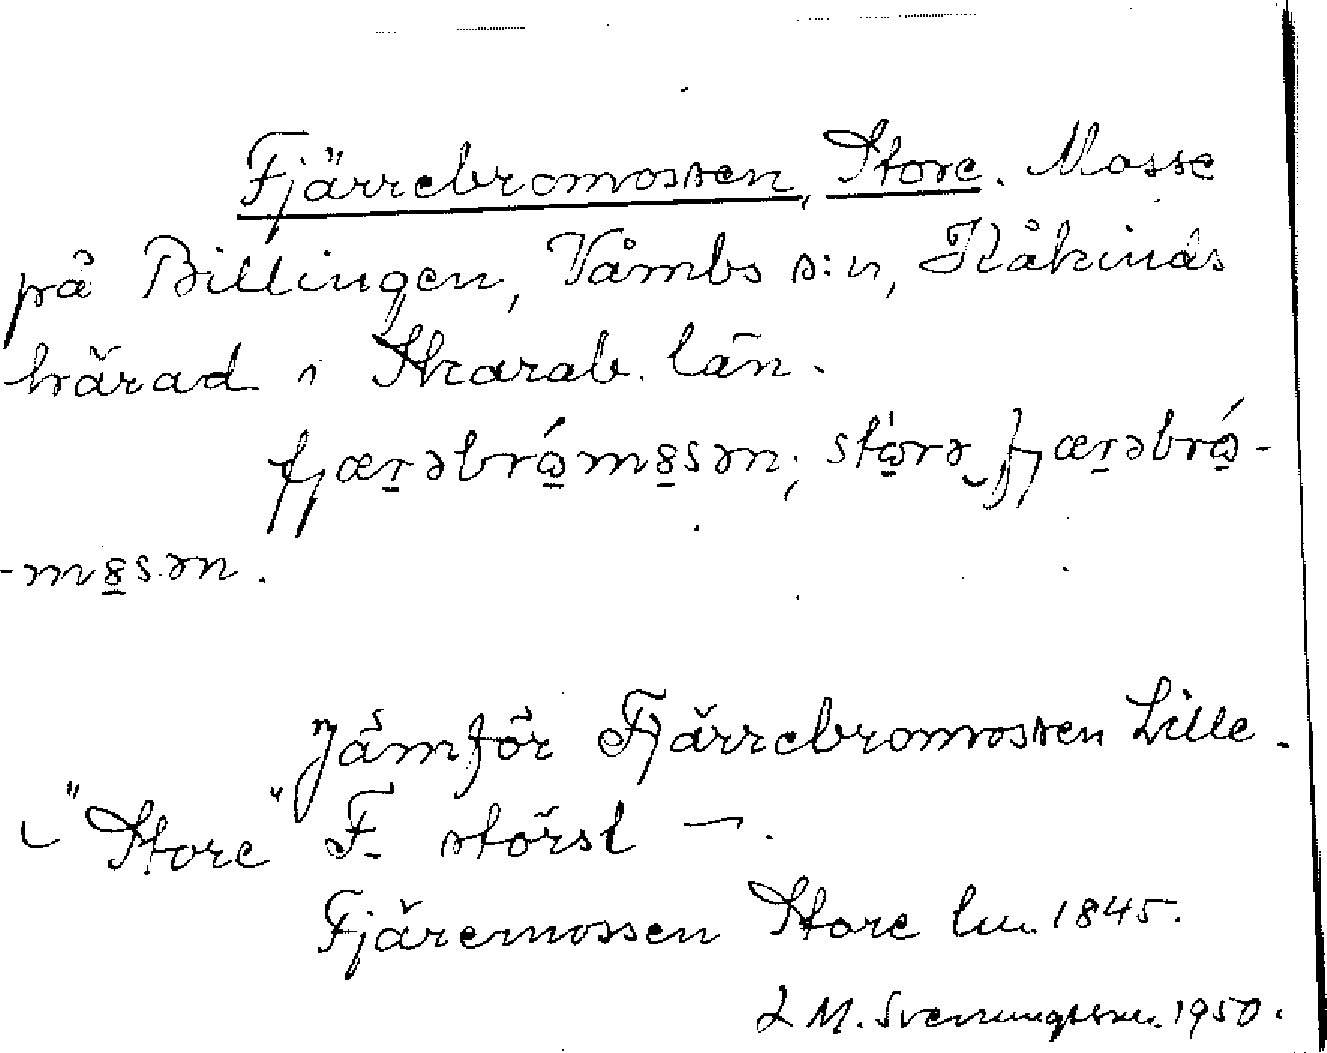 Fjärrebromossen, Store. Mosse
på Billingen, Våmbs s:n, Kåkinds
härad i Skarab. län.
fjærəbrómȣsən; störə fjærəbró-
-mȣsən.
Jämför Fjärrebromossen Lille.
"Store" F. störst
Fjäremossen Store lm. 1845.
L M. Svenungsson 1950.